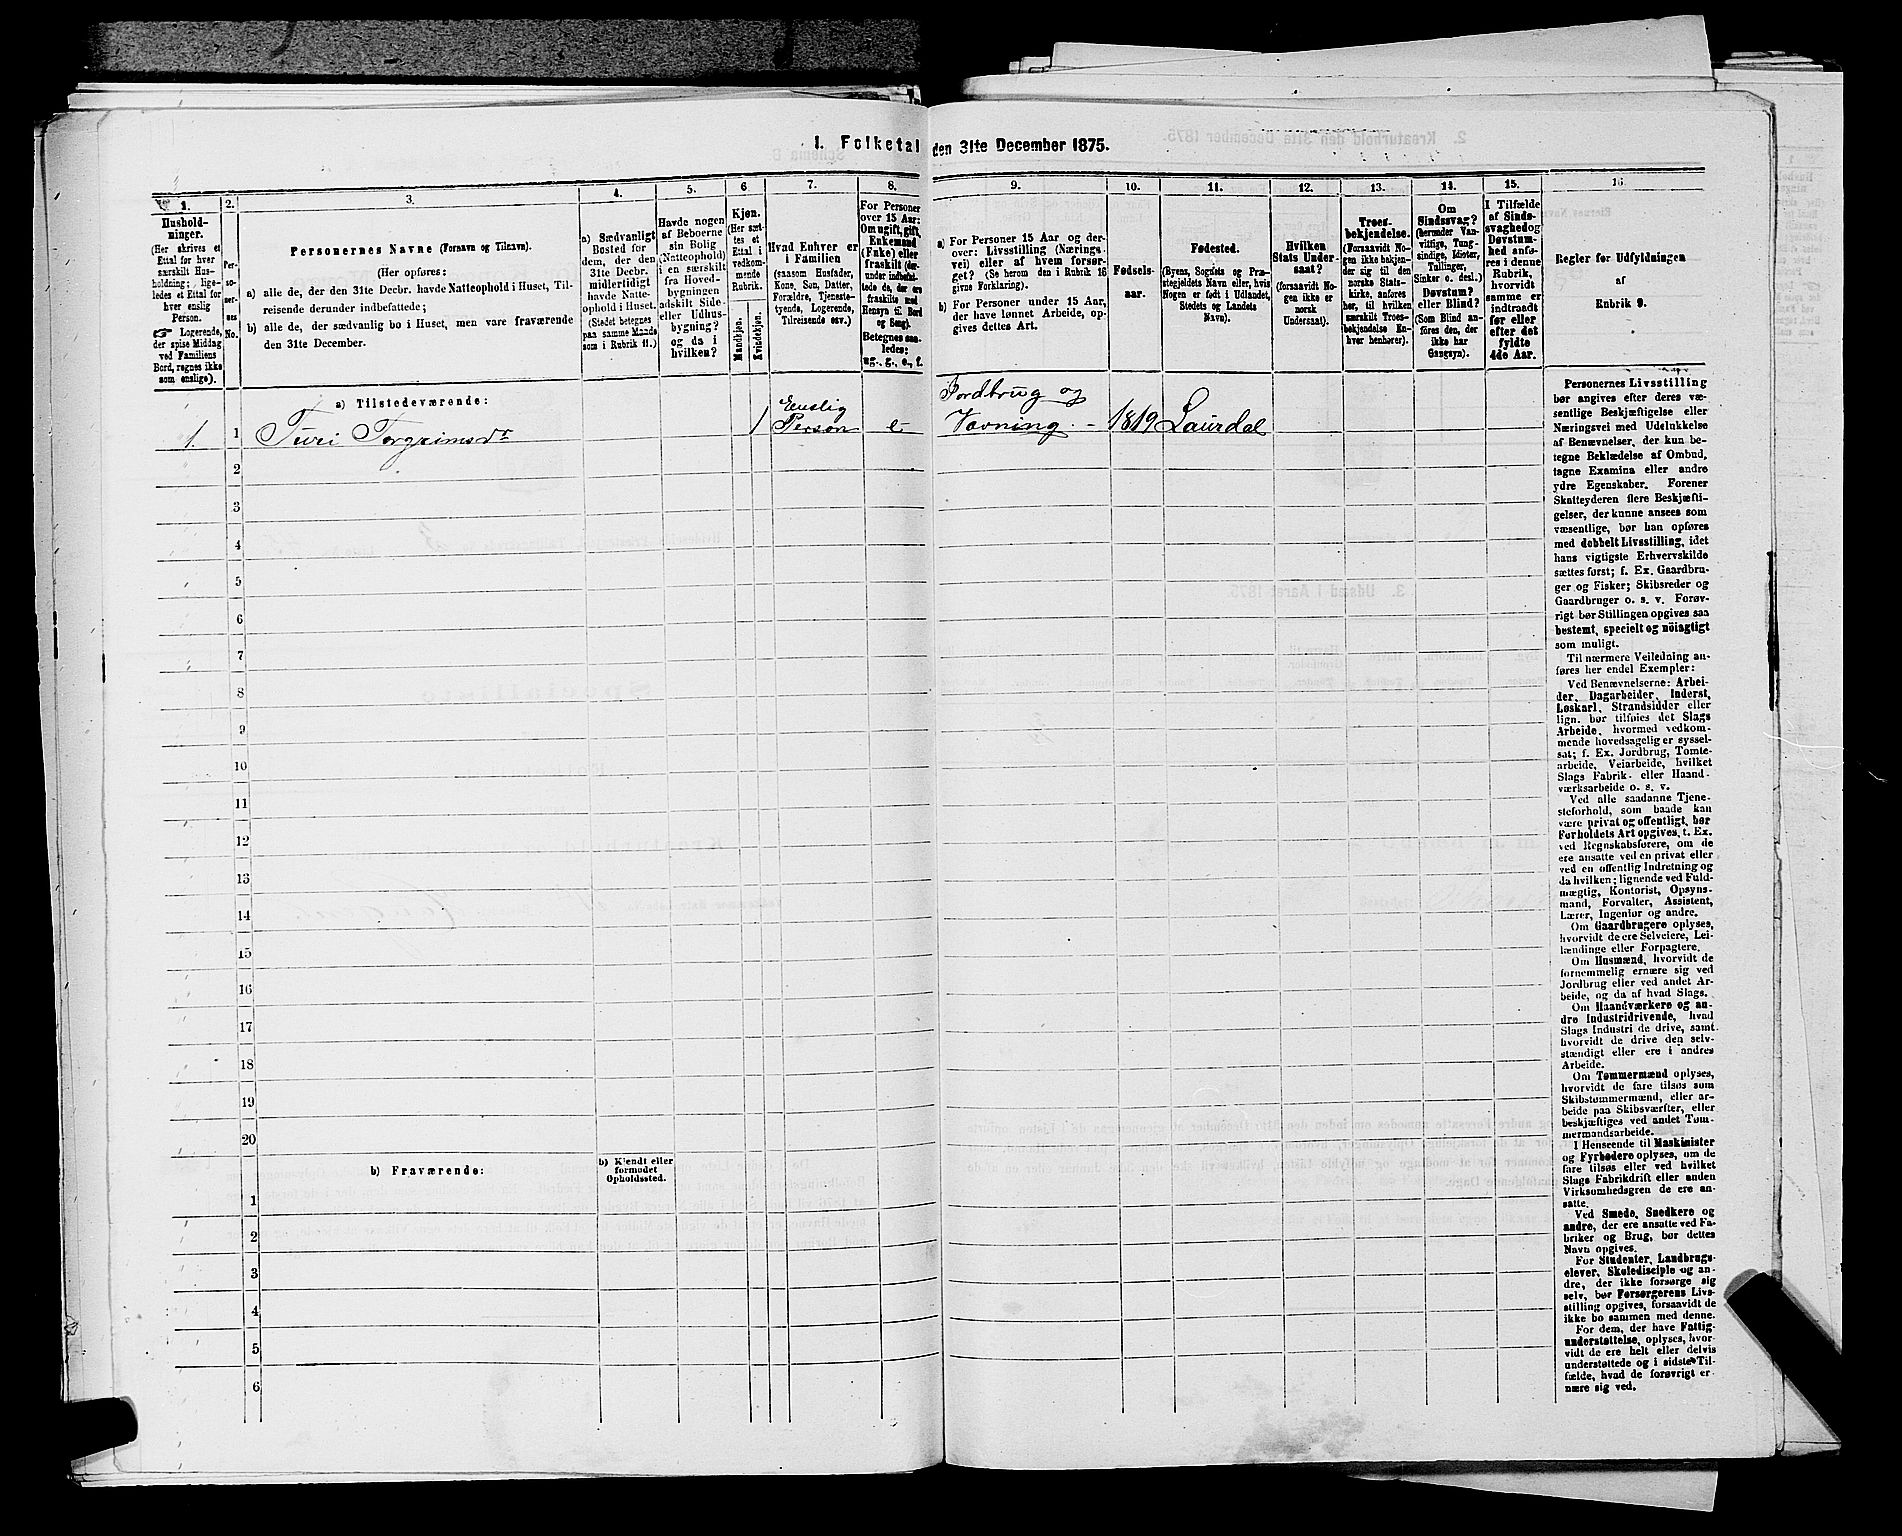 1. Folketal den 31te December 1875.
1.
Hushold-
ninger.
(Her skrives et
Ettal for hver
særskilt Hus-
holdning; lige-
ledes et Ettal for
hver enslig
Person.
☞ Logerende,
der spise Middag
ved Familiens
Bord, regnes ikke
som enslige).
2.
Per-
so-
ner-
nes
No.
3.
Personernes Navne (Fornavn og Tilnavn).
(Her opføres:
a) alle de, der den 31te Decbr. havde Natteophold i Huset, Til-
reisende derunder indbefattede;
b) alle de, der sædvanlig bo i Huset, men vare fraværende
den 31te December.
4.
a) Sædvanligt
Bosted for
dem, der den
31te Decbr.
midlertidigt
havde Natte-
ophold i Huset.
(Stedet betegnes
paa samme Maade
som i Rubrik 11.)
5.
Havde nogen
af Beboerne
sin Bolig
(Natteophold)
i en særskilt
fra Hoved-
bygningen
adskilt Side-
eller Udhus-
bygning?
og da i
hvilken?
6
Kjøn.
(Her sæt-
tes et
Ettal i
vedkom-
mende
Rubrik.
Mandkjøn.
Kvindekjøn.
7.
Hvad Enhver er
i Familien
(saasom Husfader,
Kone, Søn, Datter,
Forældre, Tjeneste-
tyende, Logerende,
Tilreisende osv.)
8.
For Personer
over 15 Aar:
Om ugift, gift,
Enkemand
(Enke) eller
fraskilt (der-
under indbefat-
tede de, der ere
fraskilte med
Hensyn til Bord
og Seng).
Betegnes saa-
ledes:
ug., g., e., f.
9.
a) For Personer 15 Aar og der-
over: Livsstilling (Nærings-
vei) eller af hvem forsør-
get? (Se herom den i Rubrik 16
givne Forklaring).
b) For Personer under 15 Aar,
der have lønnet Arbeide, op-
gives dettes Art.
10.
Fødsels-
aar.
11.
Fødested.
(Byens, Sognets og Præ-
stegjeldets Navn eller, hvis
Nogen er født i Udlandet,
Stedets og Landets
Navn).
12.
Hvilken
Stats Under-
saat?
(foraavidt No-
gen ikke er
norsk
Undersaat).
13.
Troes-
bekjendelse.
(Foraavidt No-
gen ikke bekjen-
der sig til den
norske Stats-
kirke, anføres
her, til hvilken
særskilt Troes-
bekjendelse En-
hver henhører).
14.
Om
Sindssvag?
(herunder Van-
vittige, Tung-
sindige, Idioter,
Tullinger,
Sinker o. desl.)
Døvstum?
eller Blind?
(Som Blind an-
føres den, der
ikke har
Gangsyn).
15.
I Tilfælde
af Sinds-
svaghed og
Døvstum-
hed anfø-
res i denne
Rubrik,
hvorvidt
samme er
indtraadt
før eller
efter det
fyldte
4de Aar.
16.
Regler for Udfyldningen
af
Rubrik 9.
a) Tilstedeværende:
1 1 Turi Torgrimsdr 1 Enslig
Person e Jordbrug og
Vævning. - 1819 Laurdal
2
3
4
5
6
7
8
9
10
11
12
13
14
15
16
17
18
19
20
b) Fraværende:
b) Kjendt eller
formodet
Opholdssted.
1
2
3
4
5
6
Personernes Livsstilling
bør angives efter deres væ-
sentlige Beskjæftigelse eller
Næringsvei med Udelukkelse
af Benævnelser, der kun be-
tegne Beklædelse af Ombud,
tagne Examina eller andre
ydre Egenskaber. Forener
Skatteyderen flere Beskjæfti-
gelser, der kunne ansees som
væsentlige, bør han opføres
med dobbelt Livsstilling, idet
hans vigtigste Erhvervskilde
sættes først; f. Ex. Gaardbru-
ger og Fisker; Skibsreder og
Gaardbruger o. s. v. Forøv-
rigt bør Stillingen opgives saa
bestemt, specielt og nöiagtigt
som muligt.
Til nærmere Veiledning an-
føres her endel Exempler:
Ved Benævnelserne: Arbei-
der, Dagarbeider, Inderst,
Løskarl, Strandsidder eller
lign. bør tilføies det Slags
Arbeide, hvormed vedkom-
mende hovedsagelig er syssel-
sat; f. Ex. Jordbrug, Tomte-
arbeide, Veiarbeide, hvilket
Slags Fabrik- eller Haand-
værksarbeide o. s. v.
Ved alle saadanne Tjene-
steforhold, som baade kan
være privat og offentligt, bør
Forholdets Art opgives, t. Ex.
ved Regnskabsførere, om de
ere ansatte ved en privat eller
ved en offentlig Indretning og
da hvilken; lignende ved Fuld-
mægtig, Kontorist, Opsyns-
mand, Forvalter, Assistent,
Lærer, Ingeniør og andre.
Om Gaardbrugere oplyses,
hvorvidt de ere Selveiere, Lei-
lændinge eller Forpagtere.
Om Husmænd, hvorvidt de
fornemmelig ernære sig ved
Jordbrug eller ved andet Ar-
beide, og da af hvad Slags.
Om Haandværkere og an-
dre Industridrivende, hvad
Slags Industri de drive, samt
hvorvidt de drive den selv-
stændigt eller ere i andres
Arbeide.
Om Tømmermænd oplyses,
hvorvidt de fare tilsøs som
Skibstømmermænd, eller ar-
beide paa Skibsværfter, eller
beskjæftiges ved andet Tøm-
mermandsarbeide.
I Henseende til Maskinister
og Fyrbødere oplyses, om de
fare tilsøs eller ved hvilket
Slags Fabrikdrift eller anden
Virksomhedsgren de ere an-
satte.
Ved Smede, Snedkere og
andre, der ere ansatte ved Fa-
briker og Brug, bør dettes
Navn opgives.
For Studenter, Landbrugs-
elever, Skoledisciple og an-
dre, der ikke forsørge sig
selv, bør Forsørgerens Livs-
stilling opgives, forsaavidt de
ikke bo sammen med denne.
For dem, der have Fattig-
understøttelse, oplyses, hvor-
vidt de ere helt eller delvis
understøttede og i sidste Til-
fælde, hvad de forøvrigt er-
nære sig ved.